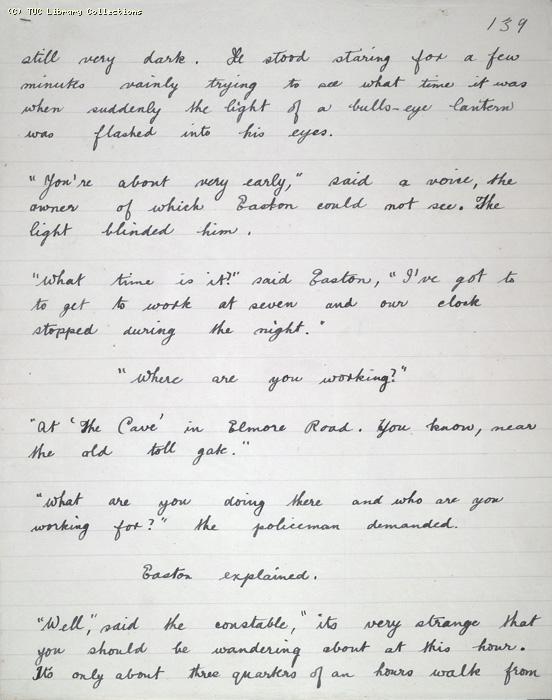 (C) TUC Library Collections
139
still very dark. He stood staring for a few
minutes vainly trying to see what time it was
when suddenly the light of a bulls-eye lantern
was flashed into his eyes.
"You're about very early," said a voice, the
owner of which Easton could not see. The
light blinded him.
"What time is it?" said Easton, "I've got to
to get to work at seven and our clock
stopped during the night."
"Where are you working?"
"At 'The Cave' in Elmore Road. You know, near
the old toll gate."
"What are you doing there and who are you
working for?" the policeman demanded.
Easton explained.
"Well," said the constable, "its very strange that
you should be wandering about at this hour.
Its only about three quarters of an hours walk from